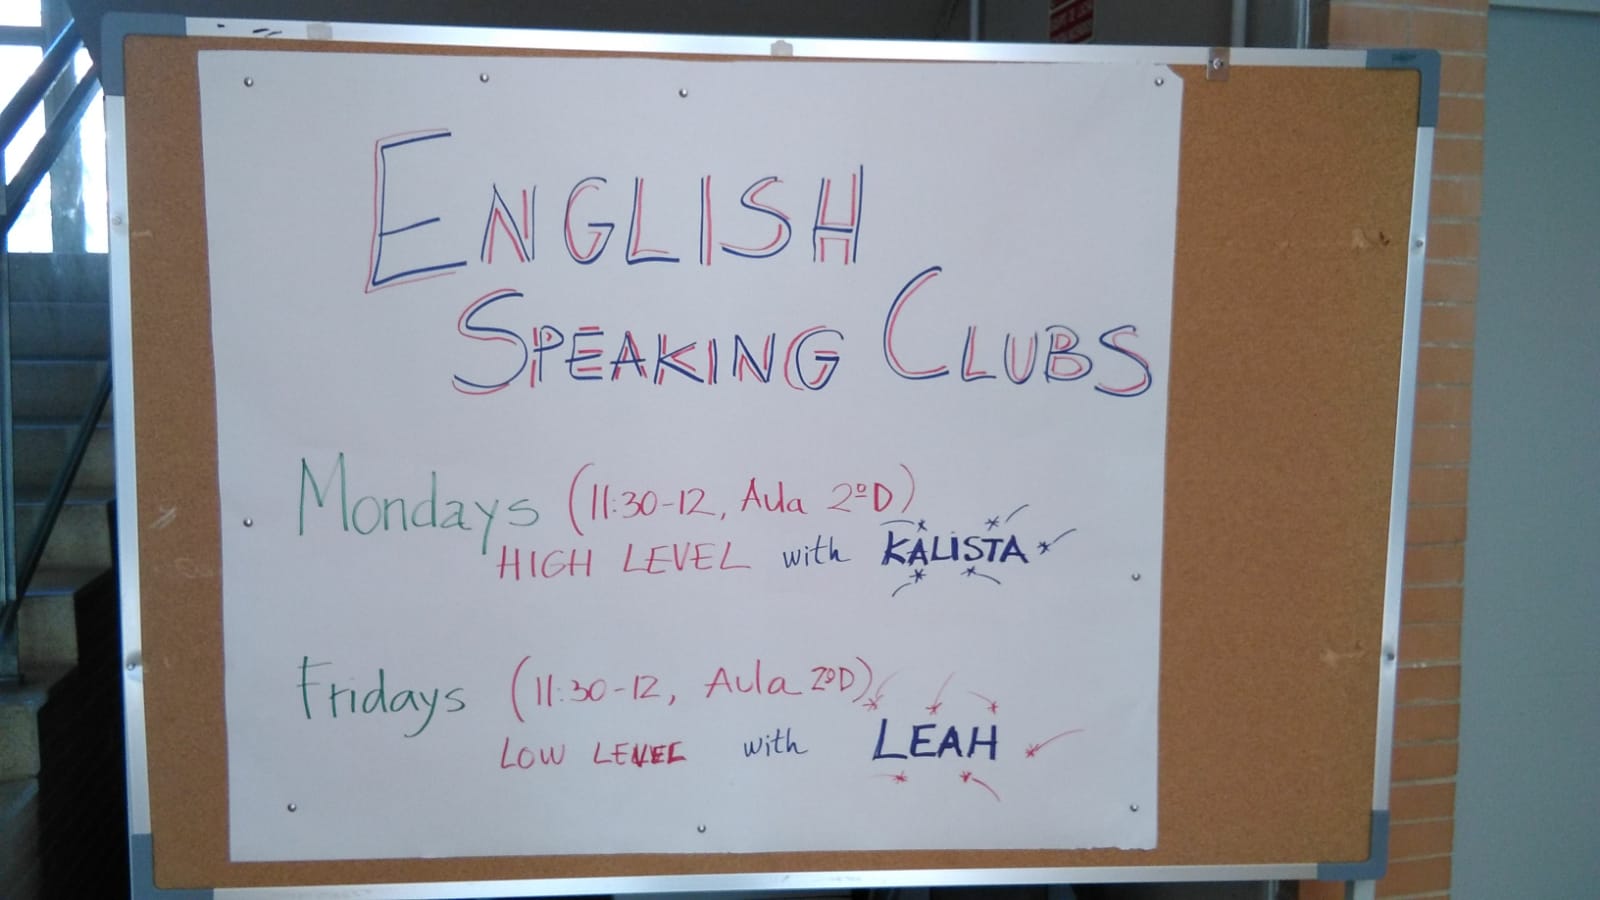 ENGLISH
SPEAKING CLUBS
Mondays (11:30-12, Aula 2ºD)
HIGH LEVEL with KALISTA
Fridays (11:30-12, Aula 2ºD)
LOW LEVEL with LEAH